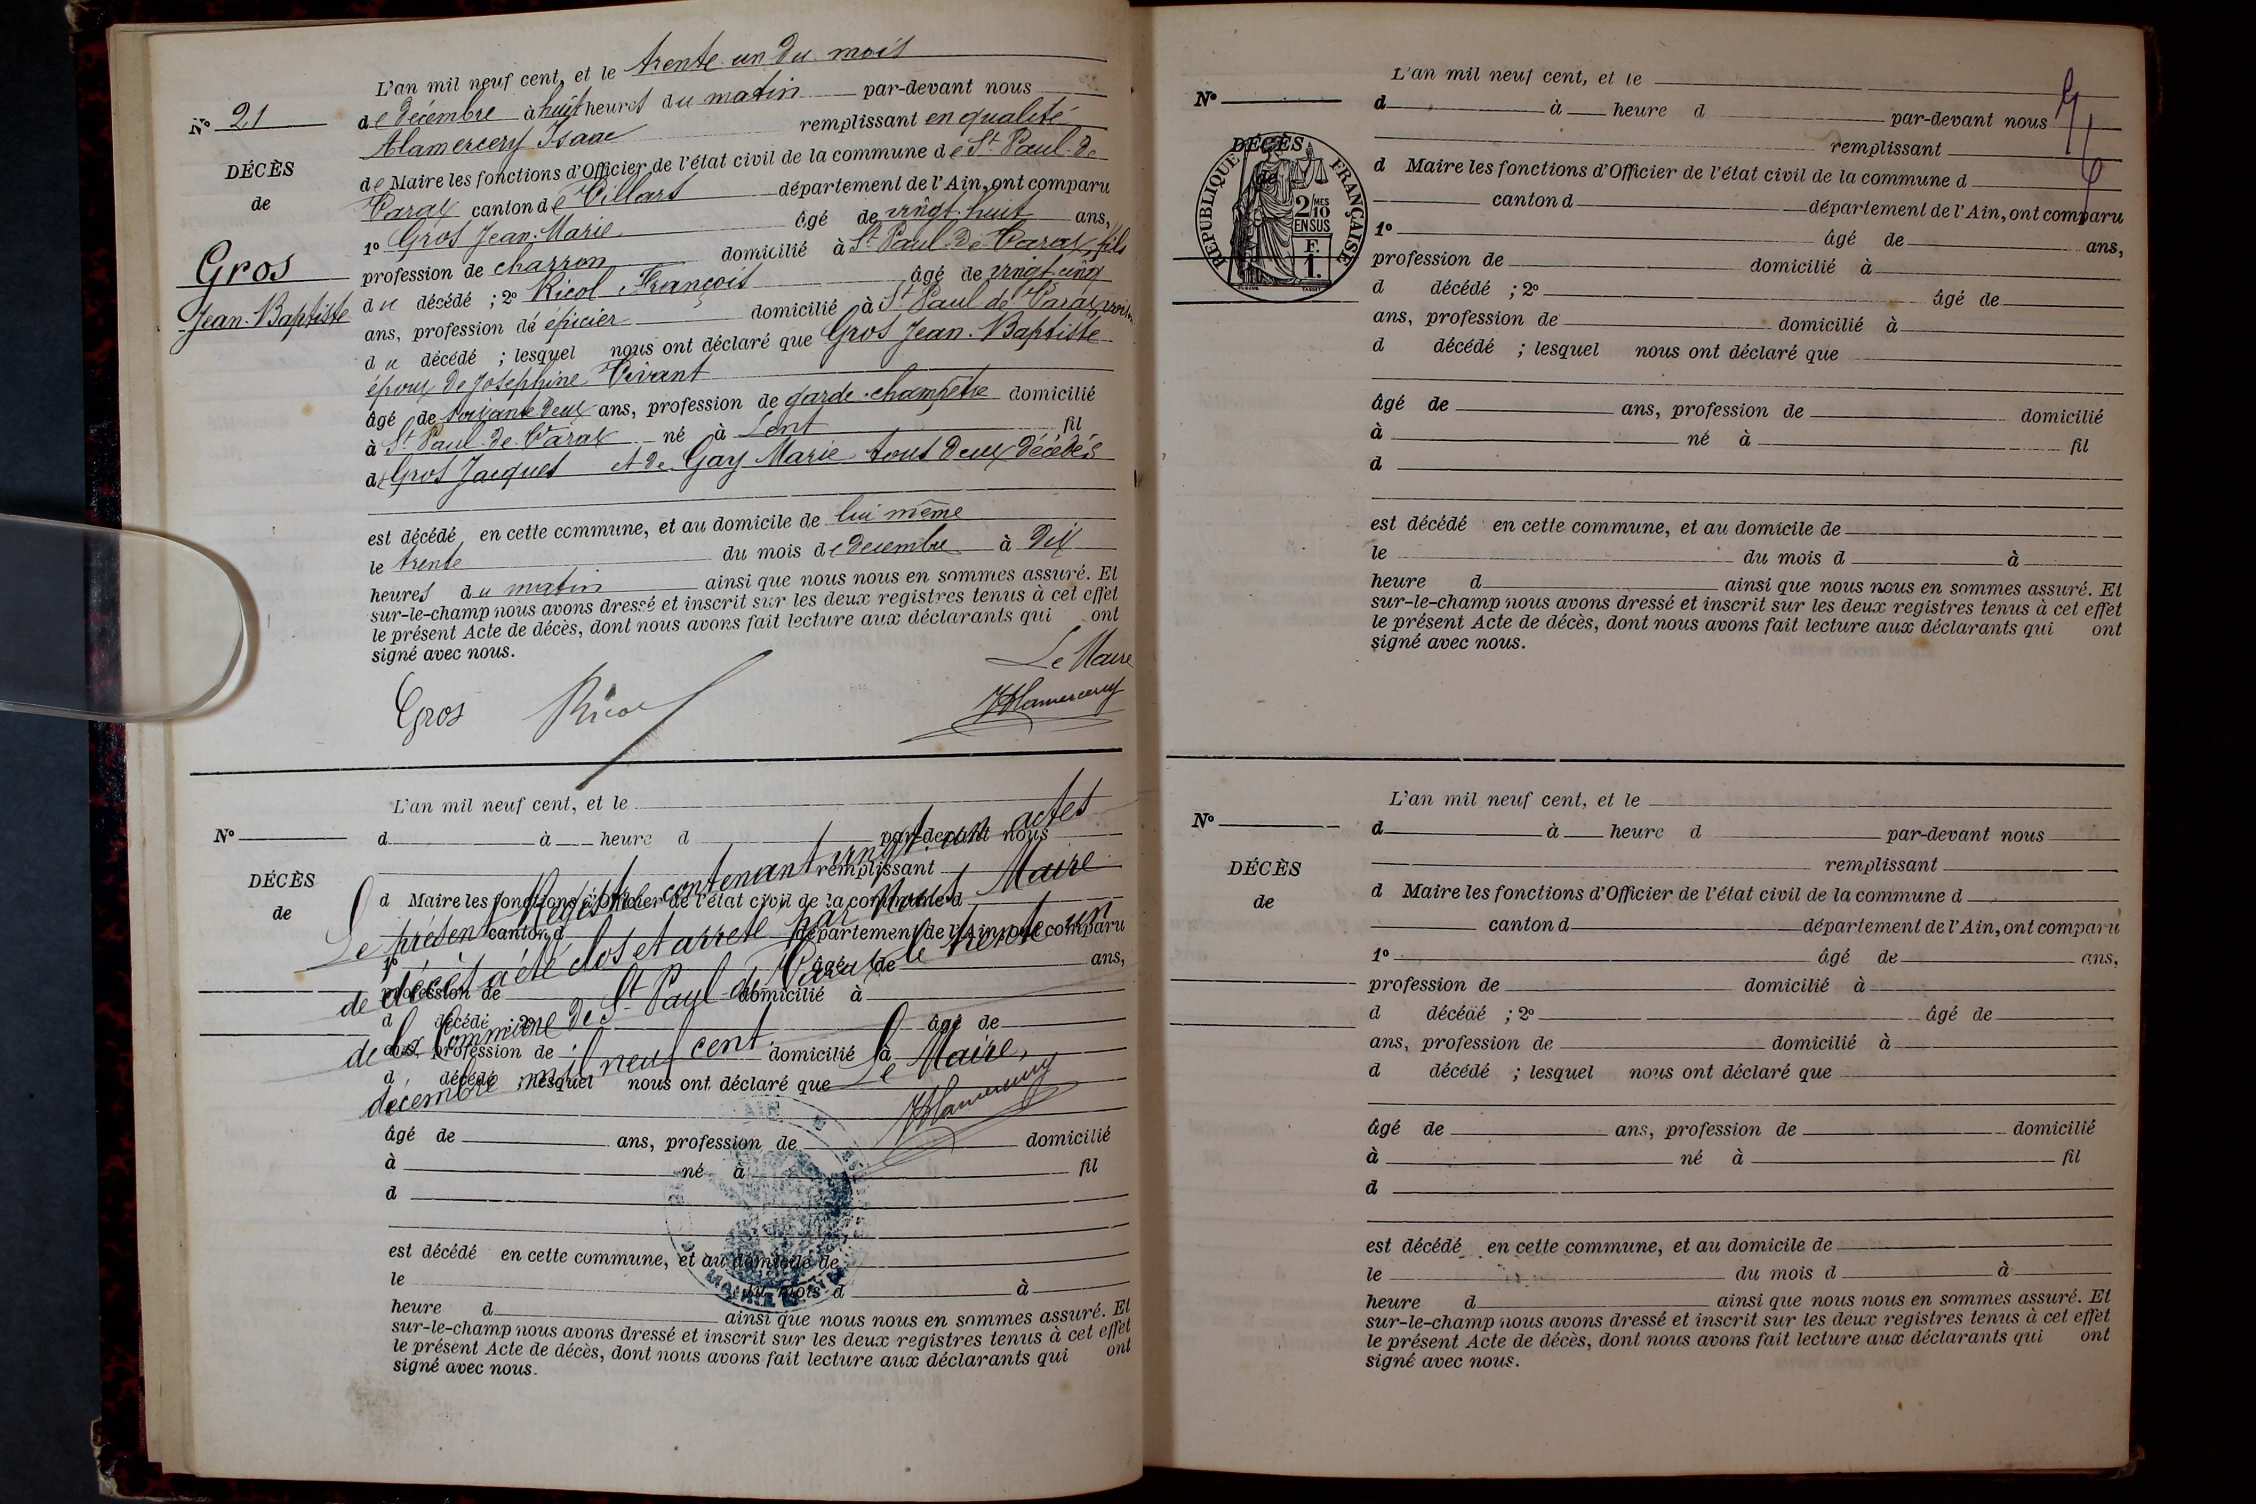 L'an mil neuf cent, et le trente un du mois
N° 21
de décembre à huit heures du matin par-devant nous
Alamercery Isaac remplissant en qualité
DÉCÈS
de Maire les fonctions d'Officier de l'état civil de la commune de St Paul de
de
Varax canton de Villars département de l'Ain, ont comparu
1° Gros Jean-Marie âgé de vingt huit ans,
Gros
profession de charron domicilié à St Paul-de-Varax, fils
Jean-Baptiste
du décédé ; 2° Ricol François âgé de vingt cinq
ans, profession de épicier domicilié à St Paul de Varax, voisin
du décédé ; lesquel nous ont déclaré que Gros Jean-Baptiste
époux de Joséphine Vivant
âgé de soixante deux ans, profession de garde-champêtre domicilié
à St Paul-de-Varax né à Lent fil
de Gros Jacques et de Gay Marie tous deux décédés
est décédé en cette commune, et au domicile de lui même
le trente du mois de décembre à dix
heures du matin ainsi que nous nous en sommes assuré. Et
sur-le-champ nous avons dressé et inscrit sur les deux registres tenus à cet effet
le présent Acte de décès, dont nous avons fait lecture aux déclarants qui ont
signé avec nous.
Le Maire
Gros Ricol IAlamercery
L'an mil neuf cent, et le
N°
d à heure d par-devant nous
remplissant
DÉCÈS
d Maire les fonctions d'Officier de l'état civil de la commune d
de
canton d département de l'Ain, ont comparu
1° âgé de ans,
profession de domicilié à
d décédé ; 2° âgé de
ans, profession de domicilié à
d décédé ; lesquel nous ont déclaré que
Le présent Registre contenant vingt-un actes
de décès a été clos et arrêté par Nous Maire
de la Commune de St Paul-de-Varax le trente un
décembre mil neuf cent.
Le Maire,
IAlamercery
AIN
âgé de ans, profession de domicilié
à né à fil
d
est décédé en cette commune, et au domicile de
le du mois d à
heure d ainsi que nous nous en sommes assuré. Et
sur-le-champ nous avons dressé et inscrit sur les deux registres tenus à cet effet
le présent Acte de décès, dont nous avons fait lecture aux déclarants qui ont
signé avec nous.
L'an mil neuf cent, et le
N°
d à heure d par-devant nous
remplissant
DÉCÈS
de
RÉPUBLIQUE FRANÇAISE
2/10 MES
EN SUS
F.
1.
d Maire les fonctions d'Officier de l'état civil de la commune d
canton d département de l'Ain, ont comparu
1° âgé de ans,
profession de domicilié à
d décédé ; 2° âgé de
ans, profession de domicilié à
d décédé ; lesquel nous ont déclaré que
âgé de ans, profession de domicilié
à né à fil
d
est décédé en cette commune, et au domicile de
le du mois d à
heure d ainsi que nous nous en sommes assuré. Et
sur-le-champ nous avons dressé et inscrit sur les deux registres tenus à cet effet
le présent Acte de décès, dont nous avons fait lecture aux déclarants qui ont
signé avec nous.
L'an mil neuf cent, et le
N°
d à heure d par-devant nous
remplissant
DÉCÈS
d Maire les fonctions d'Officier de l'état civil de la commune d
de
canton d département de l'Ain, ont comparu
1° âgé de ans,
profession de domicilié à
d décédé ; 2° âgé de
ans, profession de domicilié à
d décédé ; lesquel nous ont déclaré que
âgé de ans, profession de domicilié
à né à fil
d
est décédé en cette commune, et au domicile de
le du mois d à
heure d ainsi que nous nous en sommes assuré. Et
sur-le-champ nous avons dressé et inscrit sur les deux registres tenus à cet effet
le présent Acte de décès, dont nous avons fait lecture aux déclarants qui ont
signé avec nous.